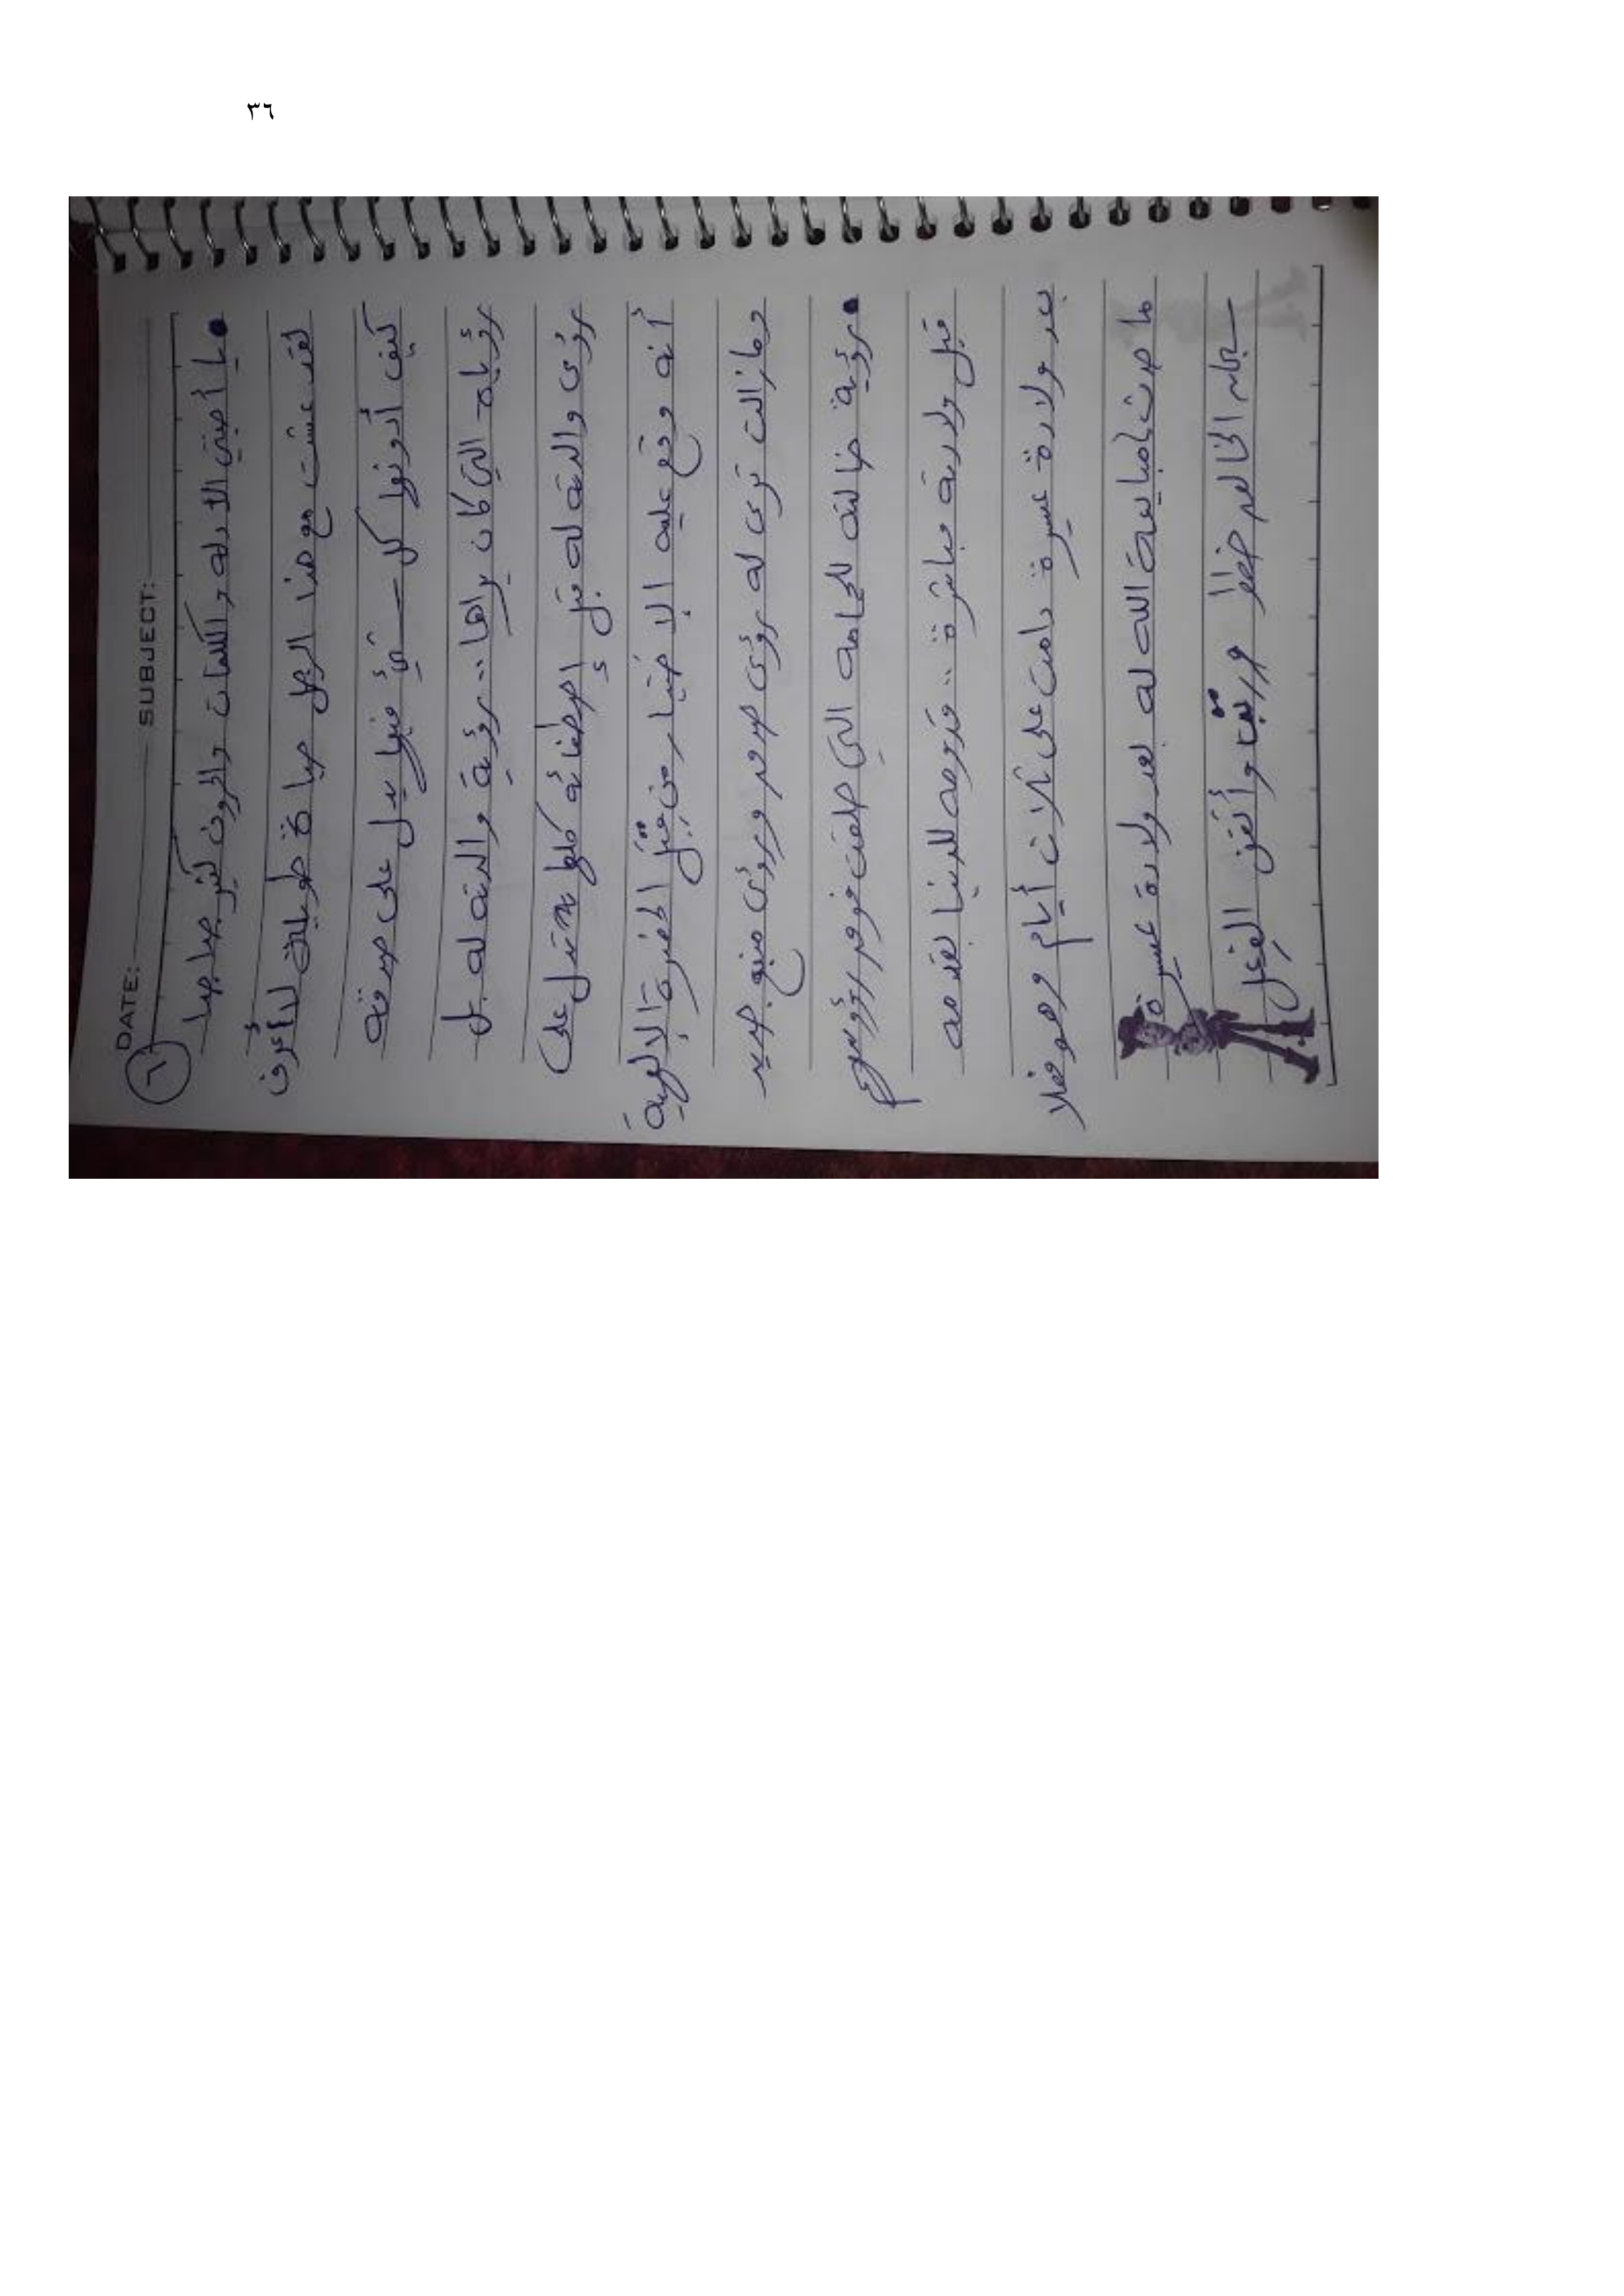 ٣٦
DATE: SUBJECT:
٦
يا أحبتي الأدلة والكلمات والحروف كثير جدا جدا
لقد عشت مع هذا الرجل حياة طويلة لا أعرف
كيف أدونها كل شئ فيها يدل على صدقه
رؤياه التي كان يراها .. رؤية والدته له بل
رؤى والدته له قبل إصطفائه كلها تدل على
أنه وقع عليه الإختيار من قِبَل الحضرة الإلهية
ومازالت ترى له رؤى صدهم ورؤى منبع جديد
رؤية خالته للحامه التي حلقت فوقهم رؤوسهم
قبل ولادته مباشرة .. قدومه للدنيا بقدمه
بعد ولادة عسيرة دامت على ثلاث أيام وهو فعلا
ما حدث فمبايعة الله له بعد ولادة عسيرة
جابر الخالهم خيرا ورتب وأتقن الغزل